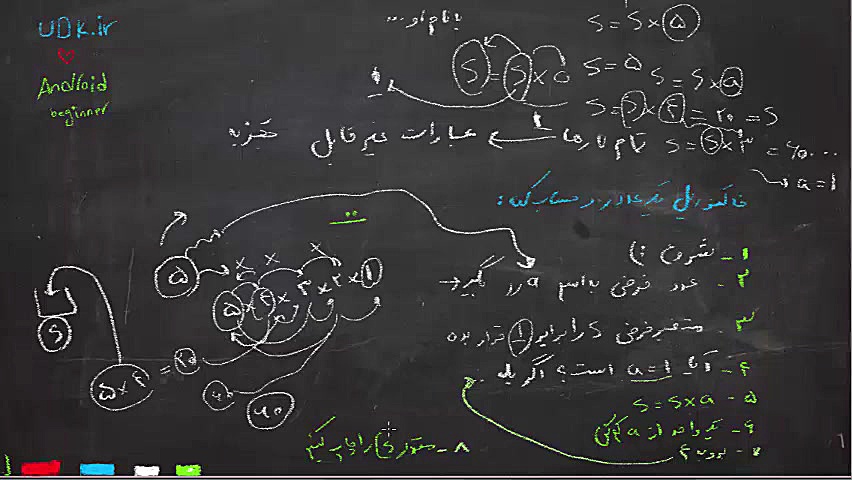 UDk.ir
Android
beginner
بنام او...
S = S × ۵
S = S × ۵
S = ۵
S = S × a
S = S × ۴ = ۲۰ = S
S = S × ۳ = ۶۰...
a = ۱
تمام نارها عبارات غیر قابل تجزیه
فاکتوریل یک عدد را حساب کند:
۱- شروع
۲- عدد فرضی به اسم a را بگیر
۳- متغیر فرضی S را برابر ۱ قرار بده
۴- آیا a = ۱ است؟ اگر بله
۵- S = S × a
۶- یک واحد از a کم کن
۷- برو به ۴
۸- مقدار S را چاپ کن
۵
۵ × ۴ × ۳ × ۲ × ۱
S
۵ × ۴ = ۲۰
۶۰